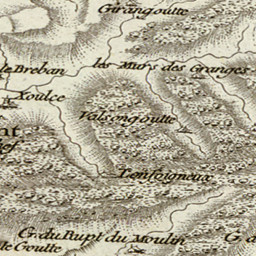 Girangoutte
le Breban
les Murs des Granges
Xoulce
Valsongoutte
nt
ief
Lenfoigneux
G. du Rupt du Moulin
G. d
le Goutte